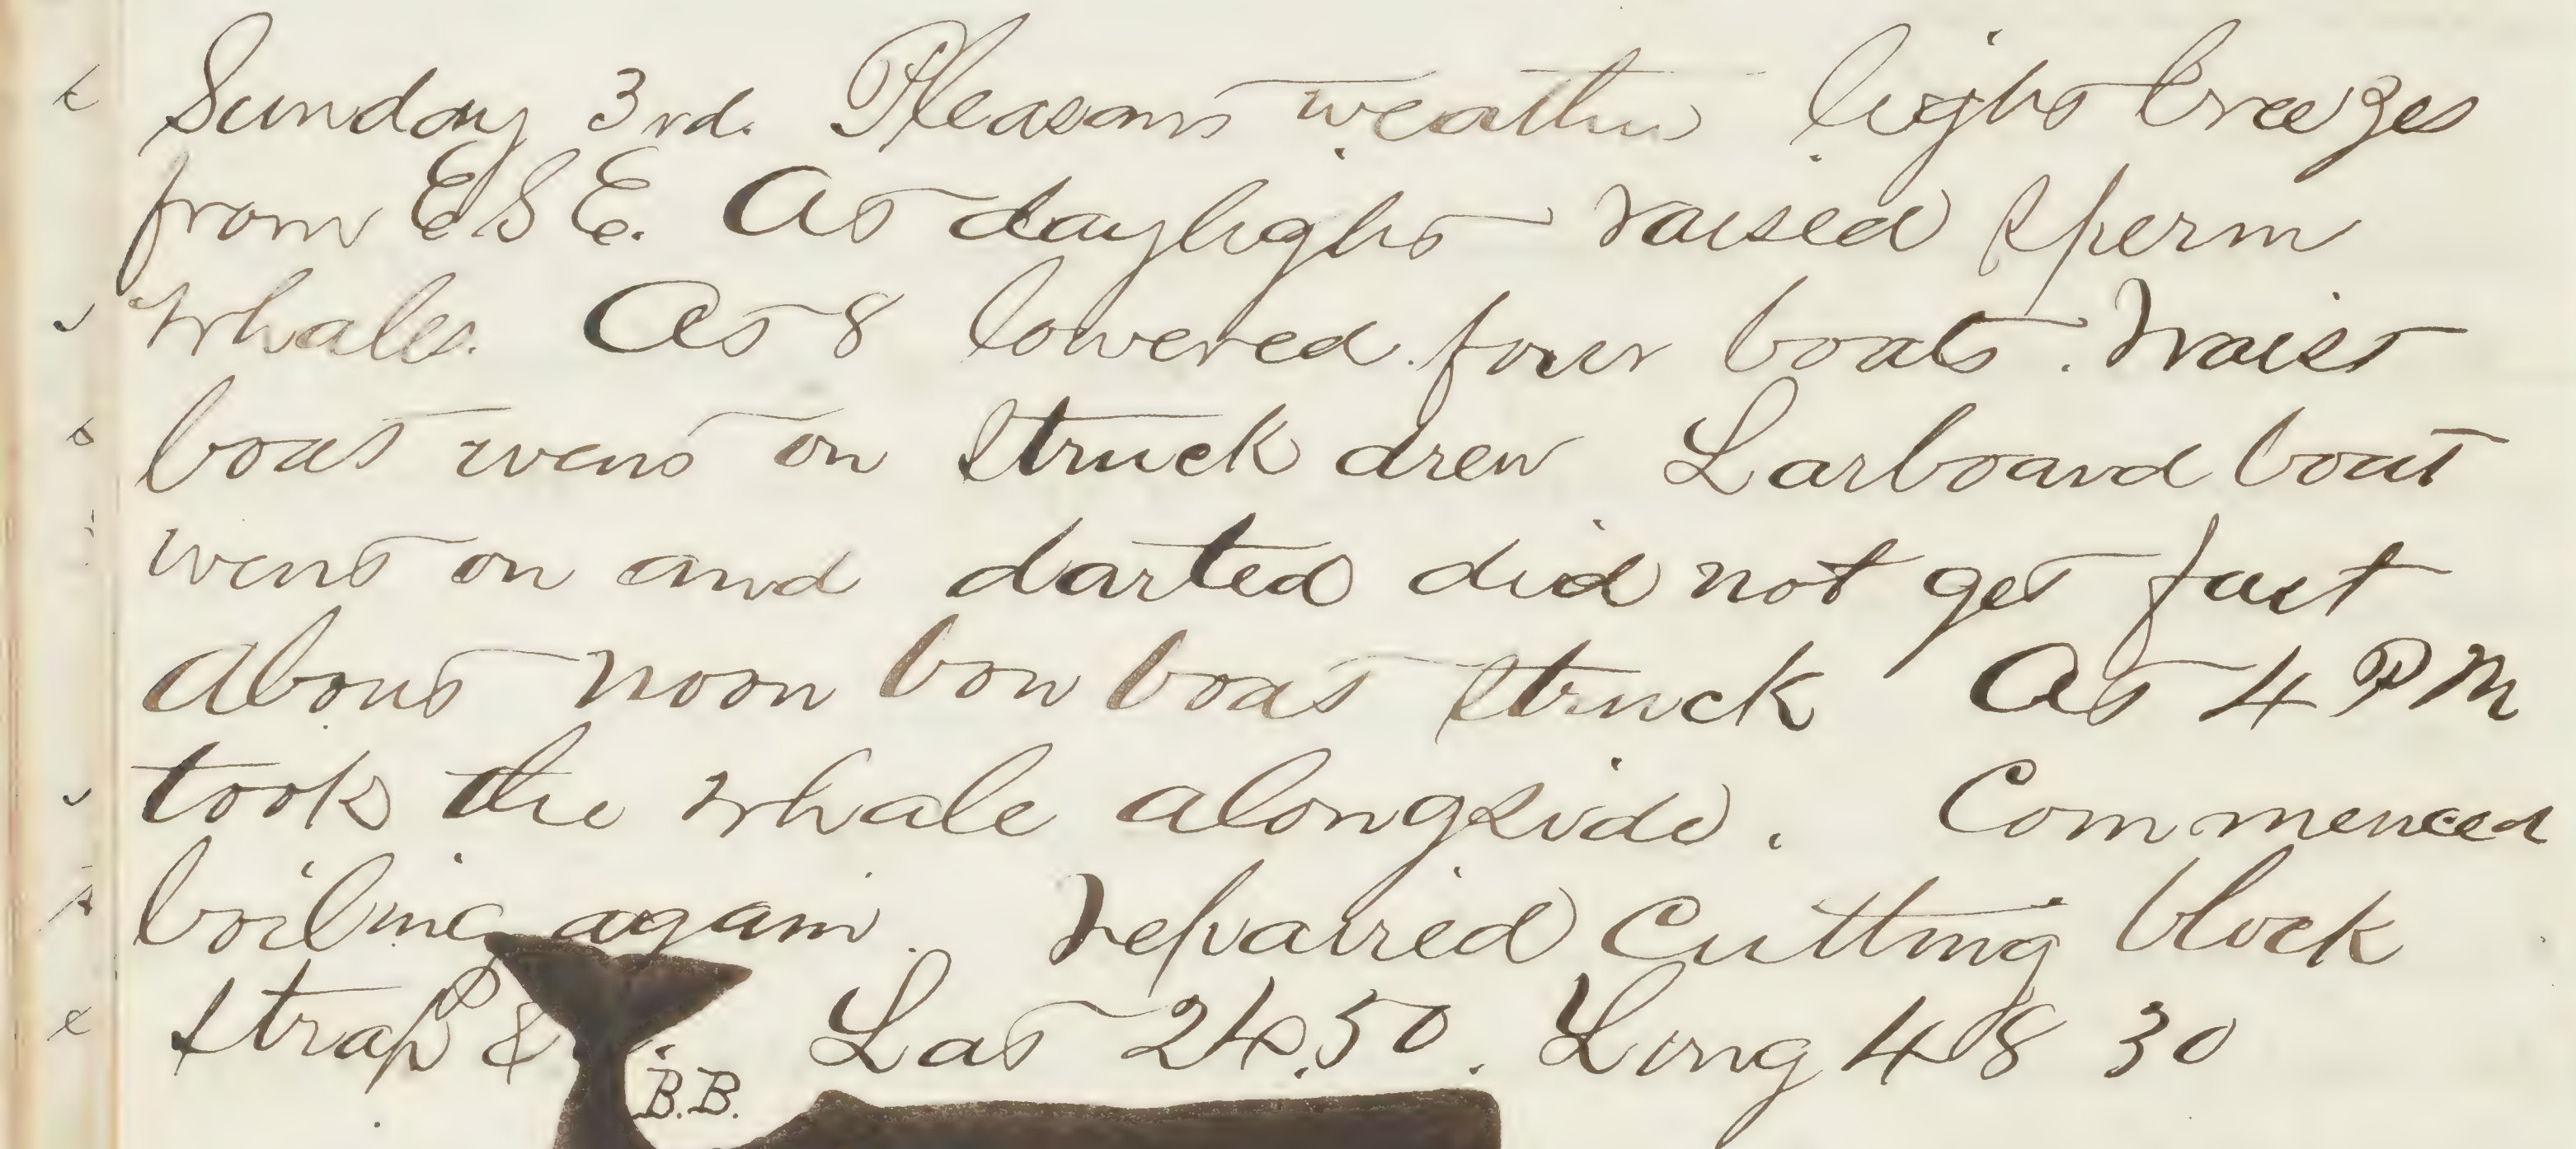 Sunday 3rd. Pleasant weather light breezes
from ESE. At daylight raised sperm
whales. At 8 lowered four boats. Waist
boat went on struck drew Larboard boat
went on and darted did not get fast
About noon bow boat struck At 4 PM
took the whale alongside. Commenced
boiling again. repaired Cutting block
strap &
Lat 24.50. Long 48 30
B.B.